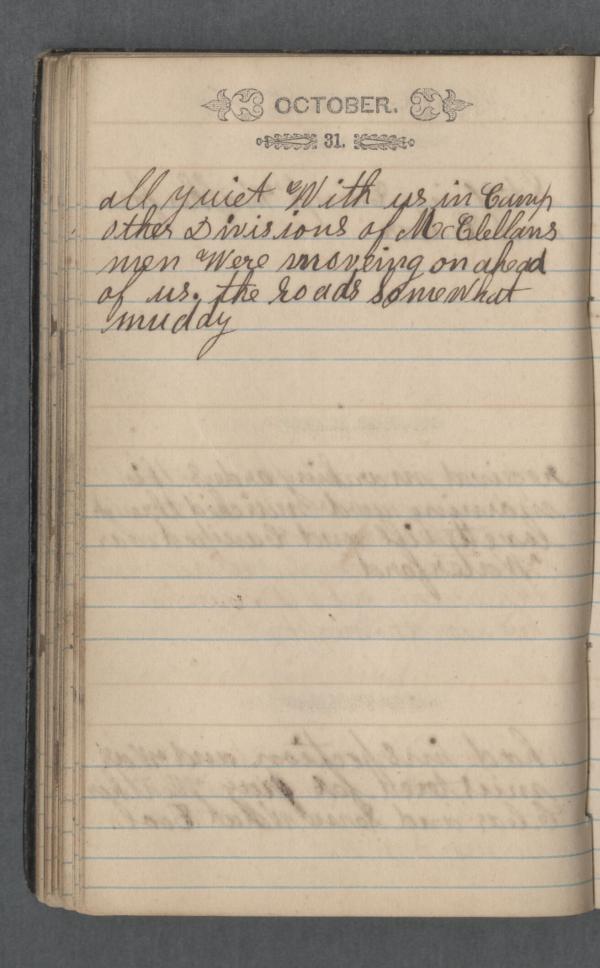 OCTOBER.
31.
all quiet With us in Camp
other Divisions of McClellans
men Were moveing on ahead
of us. the roads somewhat
muddy